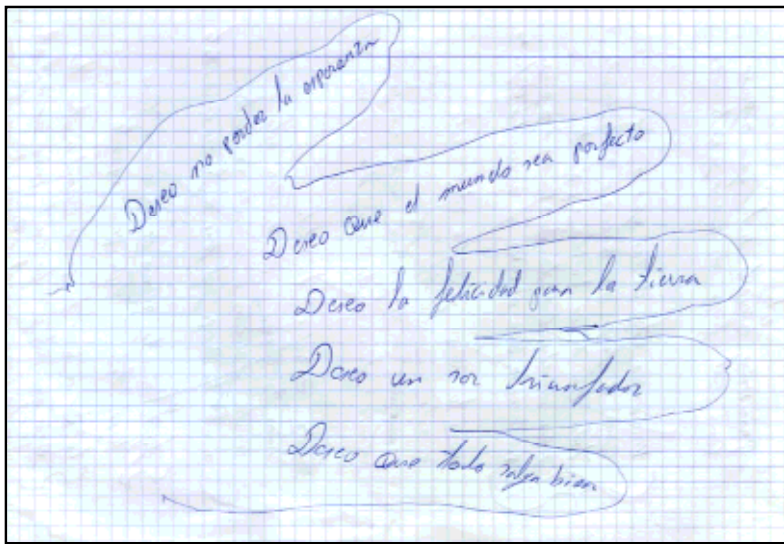 Deseo no perder la esperanza
Deseo que el mundo sea perfecto
Deseo la felicidad para la tierra
Deseo un ser triunfador
Deseo que todo salga bien